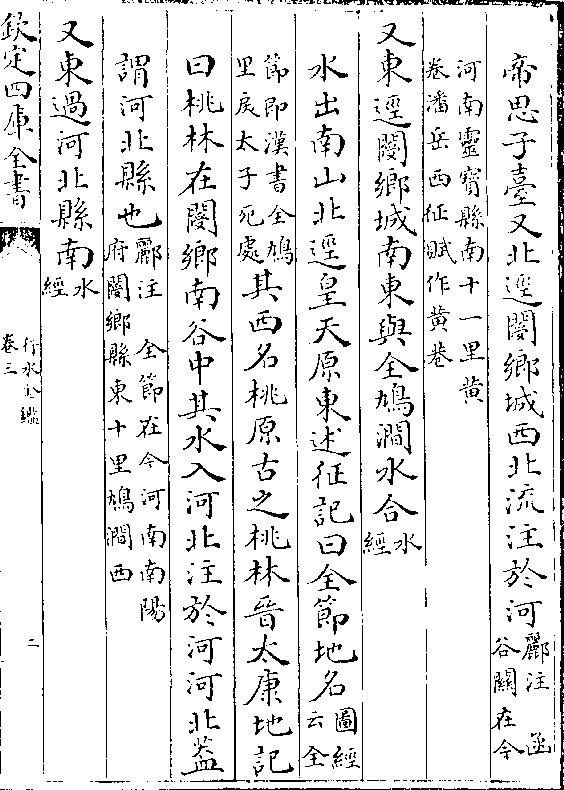 帝思子臺又北逕閿鄉城西北流注於河酈注　函谷關在今
河南靈寳縣南十一里黄巷潘岳西征賦作黄巷
又東逕閿鄉城南東與全鳩澗水合水經
水出南山北逕皇天原東述征記曰全節地名圖經云全
節即漢書全鳩里戾太子死處其西名桃原古之桃林晉太康地記
曰桃林在閿鄉南谷中其水入河北注於河河北葢
謂河北縣也酈注　全節在今河南南陽府閿鄉縣東十里鳩澗西
又東過河北縣南水經
欽定四庫全書
行水金鑑
卷三
二